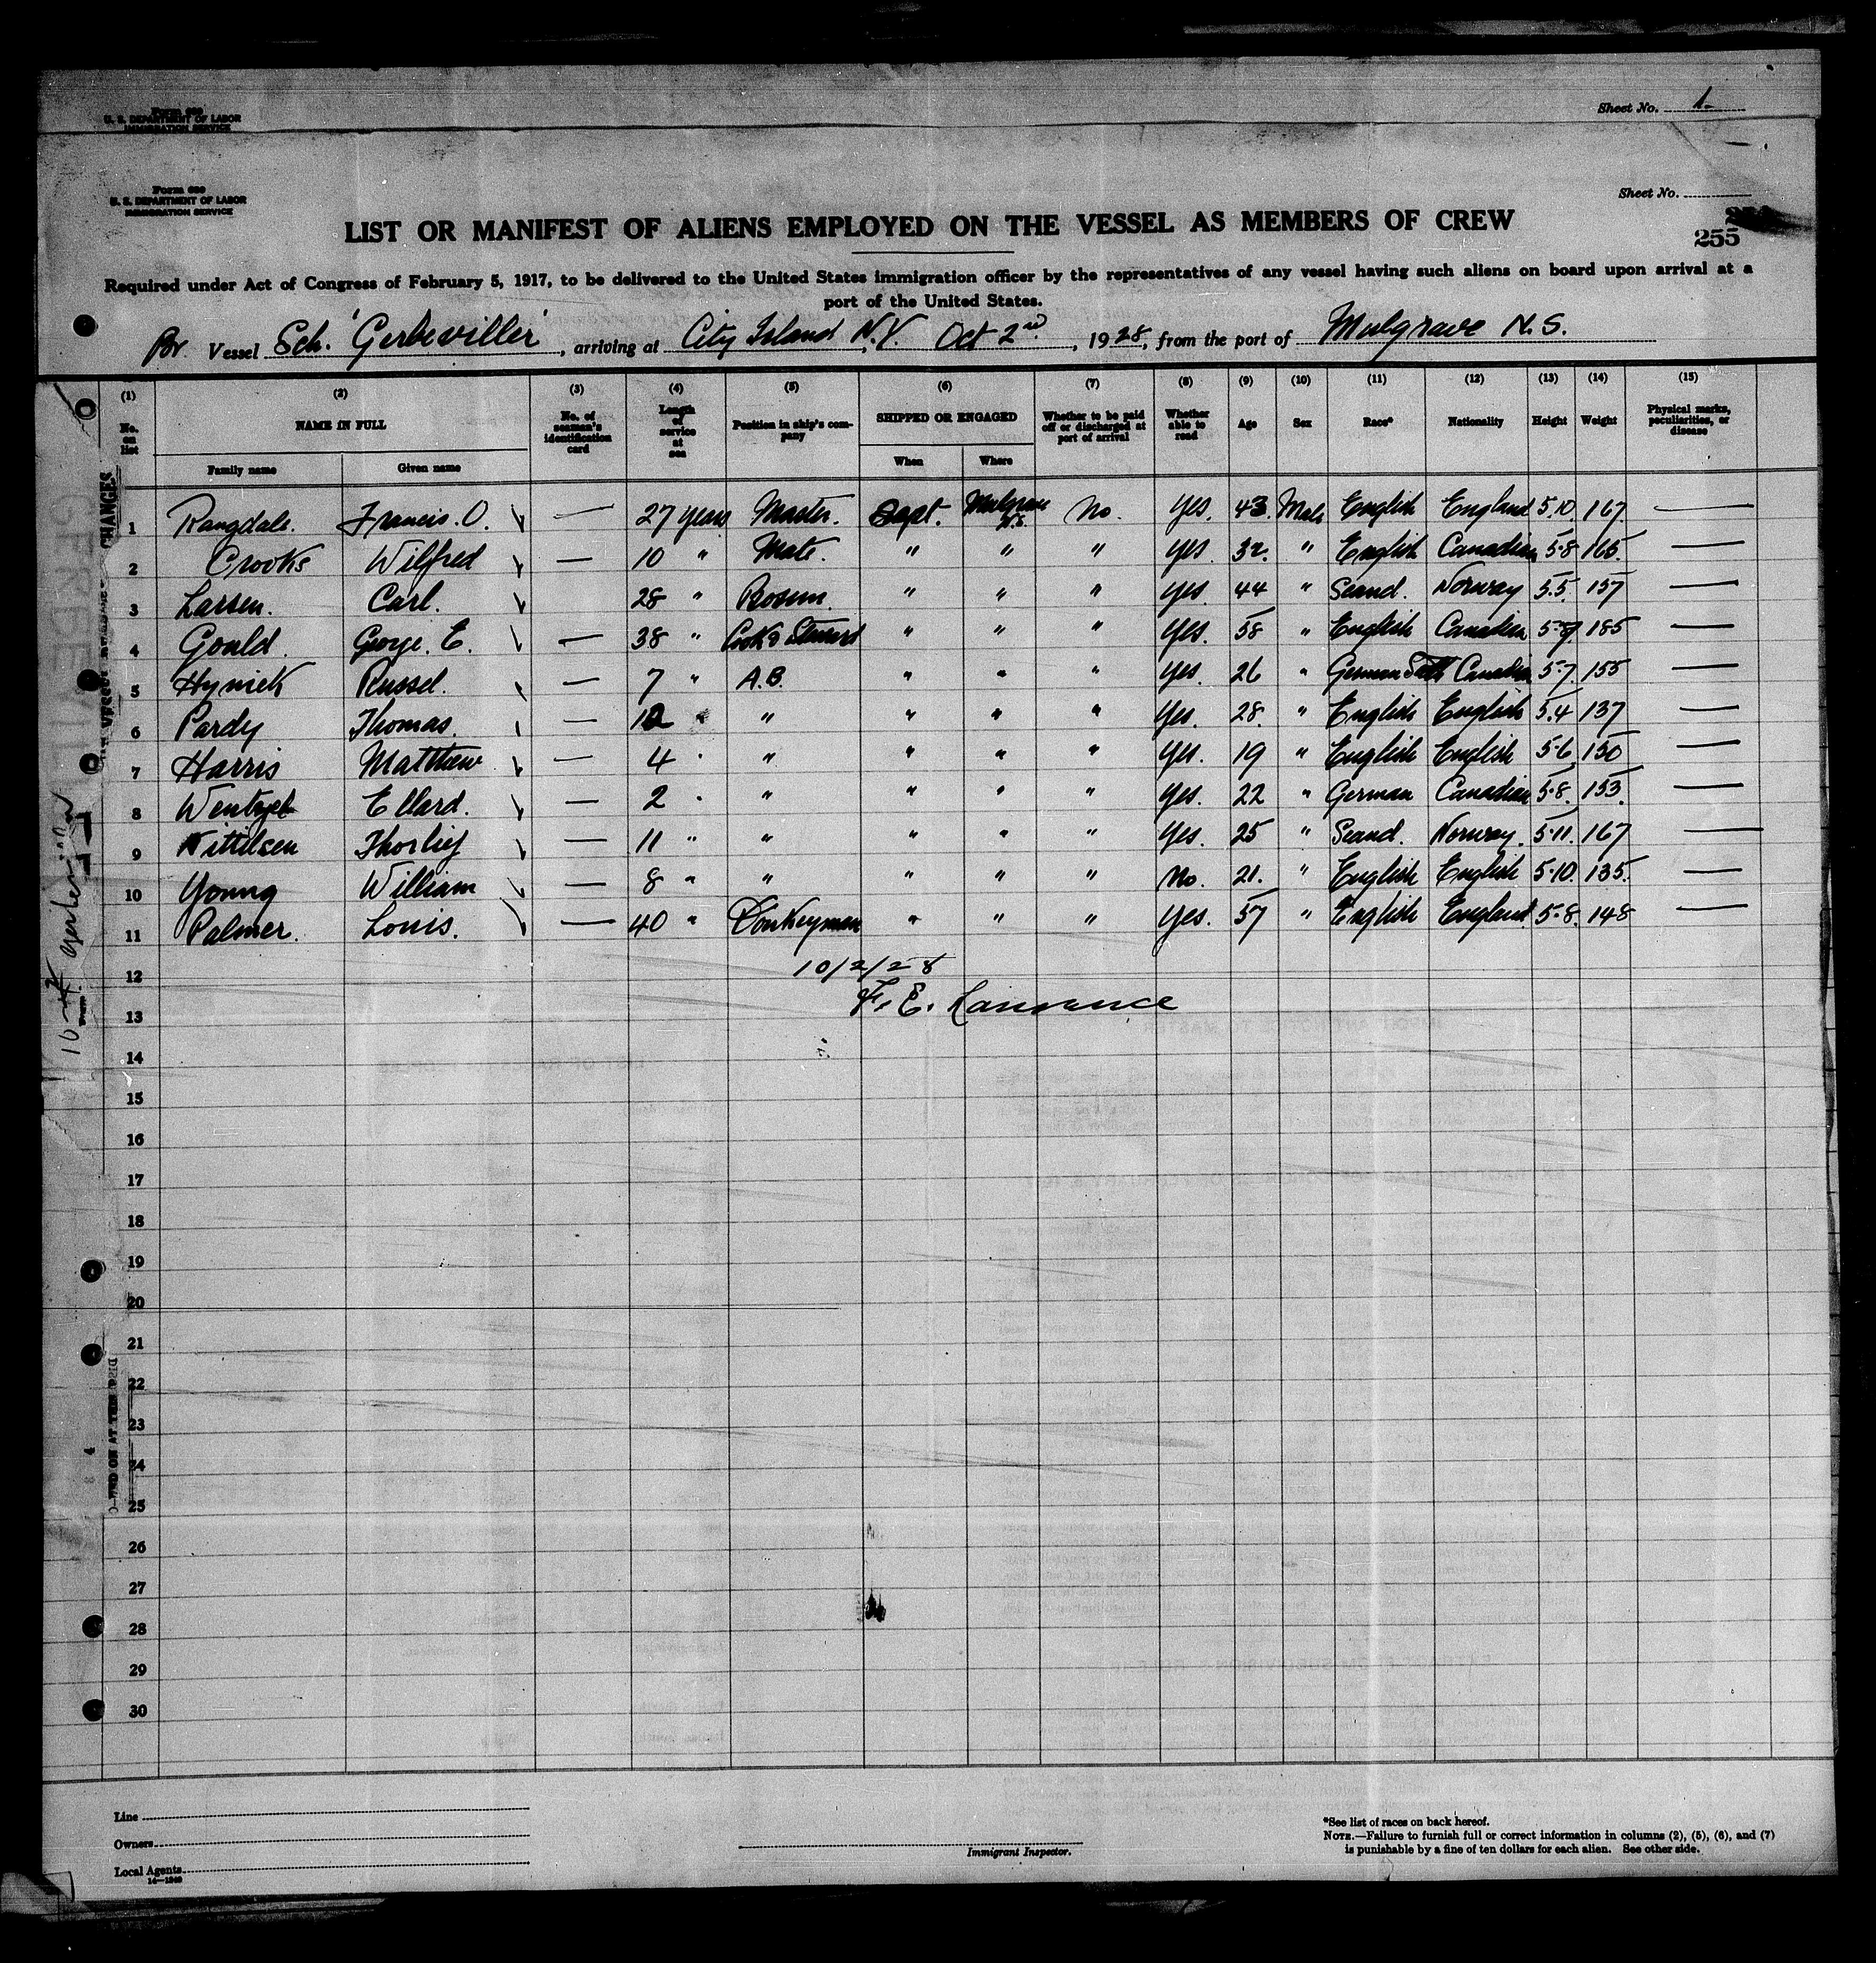 Form 680
U. S. DEPARTMENT OF LABOR
IMMIGRATION SERVICE
Sheet No. 1
Form 680
U. S. DEPARTMENT OF LABOR
IMMIGRATION SERVICE
Sheet No.
LIST OR MANIFEST OF ALIENS EMPLOYED ON THE VESSEL AS MEMBERS OF CREW
255
Required under Act of Congress of February 5, 1917, to be delivered to the United States immigration officer by the representatives of any vessel having such aliens on board upon arrival at a
port of the United States.
Br. Vessel Sch. 'Gerbeviller', arriving at City Island N.Y. Oct 2nd, 1928, from the port of Mulgrave N.S.
(1) (2) (3) (4) (5) (6) (7) (8) (9) (10) (11) (12) (13) (14) (15)
No. on list NAME IN FULL No. of seaman's identification card Length of service at sea Position in ship's company SHIPPED OR ENGAGED Whether to be paid off or discharged at port of arrival Whether able to read Age Sex Race* Nationality Height Weight Physical marks, peculiarities, or disease
Family name Given name When Where
1 Rangdale. Francis. O. — 27 years Master. Sept. Mulgrave N.S. No. Yes. 43. Male English England 5.10. 167. —
2 Crooks Wilfred — 10 " Mate. " " " Yes. 32. " English Canadian 5.8 165. —
3 Larsen. Carl. 28 " Bosun. " " " Yes. 44 " Scand. Norway 5.5. 157 —
4 Gould. George. E. — 38 " Cook & Steward " " " Yes. 58 " English Canadian 5.8 185 —
5 Hynick Russel. — 7 " A.B. " " " Yes. 26 " German Canadian 5.7. 155
6 Pardy Thomas. — 10 " " " " " Yes. 28. " English English 5.4 137 —
7 Harris Matthew — 4 " " " " " Yes. 19 " English English 5.6 150 —
8 Wentzel Ellard. — 2 " " " " " Yes. 22 " German Canadian 5.8. 153. —
9 Nittilsen Thorlief — 11 " " " " " Yes. 25 " Scand. Norway. 5.11. 167 —
10 Young William — 8 " " " " " No. 21. " English English 5.10. 135. —
11 Palmer. Louis. — 40 " Donkeyman " " " Yes. 57 " English England 5.8. 148 —
12 10/2/28
13 F. E. Lawrence
14
15
16
17
18
19
20
21
22
23
24
25
26
27
28
29
30
CHANGES
Line
Owners
Local Agents
14—1240
Immigrant Inspector.
*See list of races on back hereof.
NOTE.—Failure to furnish full or correct information in columns (2), (5), (6), and (7)
is punishable by a fine of ten dollars for each alien. See other side.